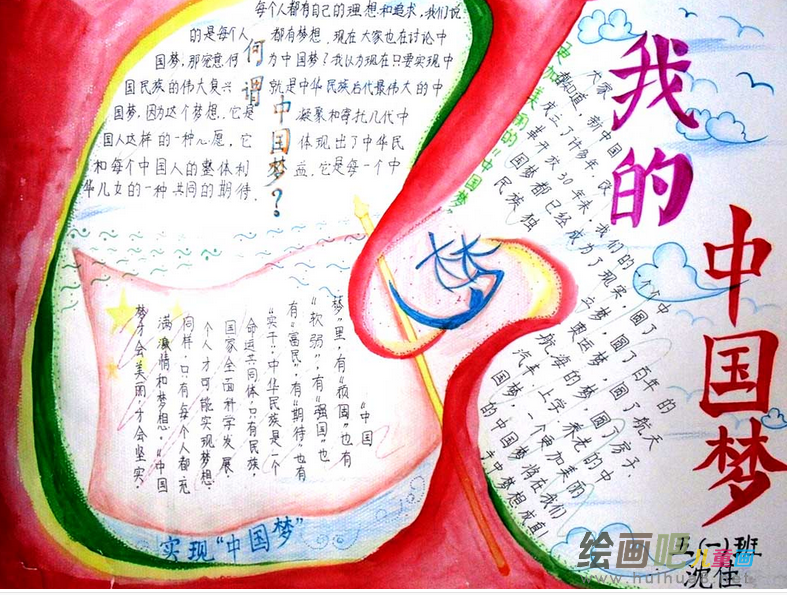 我的
中国梦
五(一)班
沈佳
每个人都有自己的理想和追求,我们说
的是每个人都有梦想。现在大家也在讨论中
国梦,那究竟何为中国梦?我以为现在只要实现中
国民族的伟大复兴就是中华民族近代最伟大的中
国梦,因为这个梦想,它是凝聚和寄托几代中
国人这样的一种心愿,它体现出了中华民
和每个中国人的整体利益,它是每一个中
华儿女的一种共同的期待。
何谓中国梦?
大家都知道,新中国
成立了许多年,改
革开放30年来,我们的一个个中
国梦都已经成为了现实,圆了百年的
民族独立梦,圆了
奥运梦,圆了航天
航海的梦,圆了房子、
汽车、上学、养老的中
国梦,一个更加美丽
的中国梦将在我们
手中梦想成真!
梦
“中国
梦”里,有“顽固”也有
“软弱”;有“强国”也
有“富民”;有“期待”也有
“实干”。中华民族是一个
命运共同体,只有民族,
国家全面科学发展,
个人才可能实现梦想。
同样,只有每个人都充
满激情和梦想,“中国
梦才会美丽才会坚实。
实现“中国梦”
绘画吧儿童画